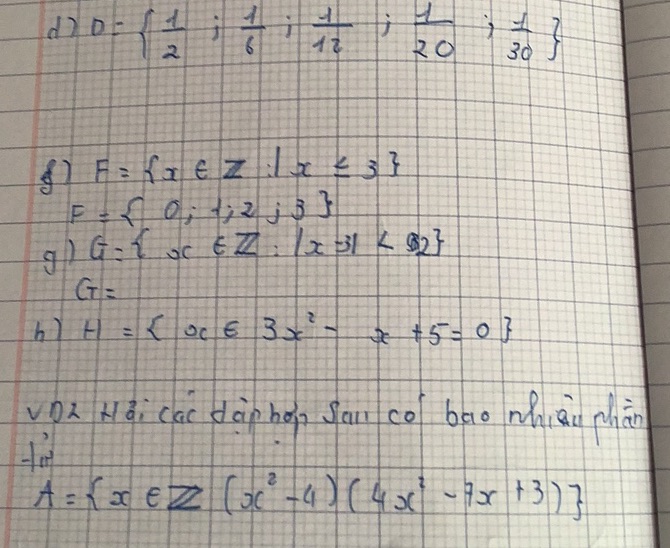 d) D = { 1/2 ; 1/6 ; 1/12 ; 1/20 ; 1/30 }
f) F = {x ∈ Z : | x ≤ 3}
F = { 0; 1; 2; 3 }
g) G = { x ∈ Z : |x - 3| < 2}
G =
h) H = { x ∈ 3x² - x + 5 = 0 }
VD2 Hỏi các tập hợp sau có bao nhiêu phần
tử
A = {x ∈ Z (x² - 4) (4x² - 7x + 3)}